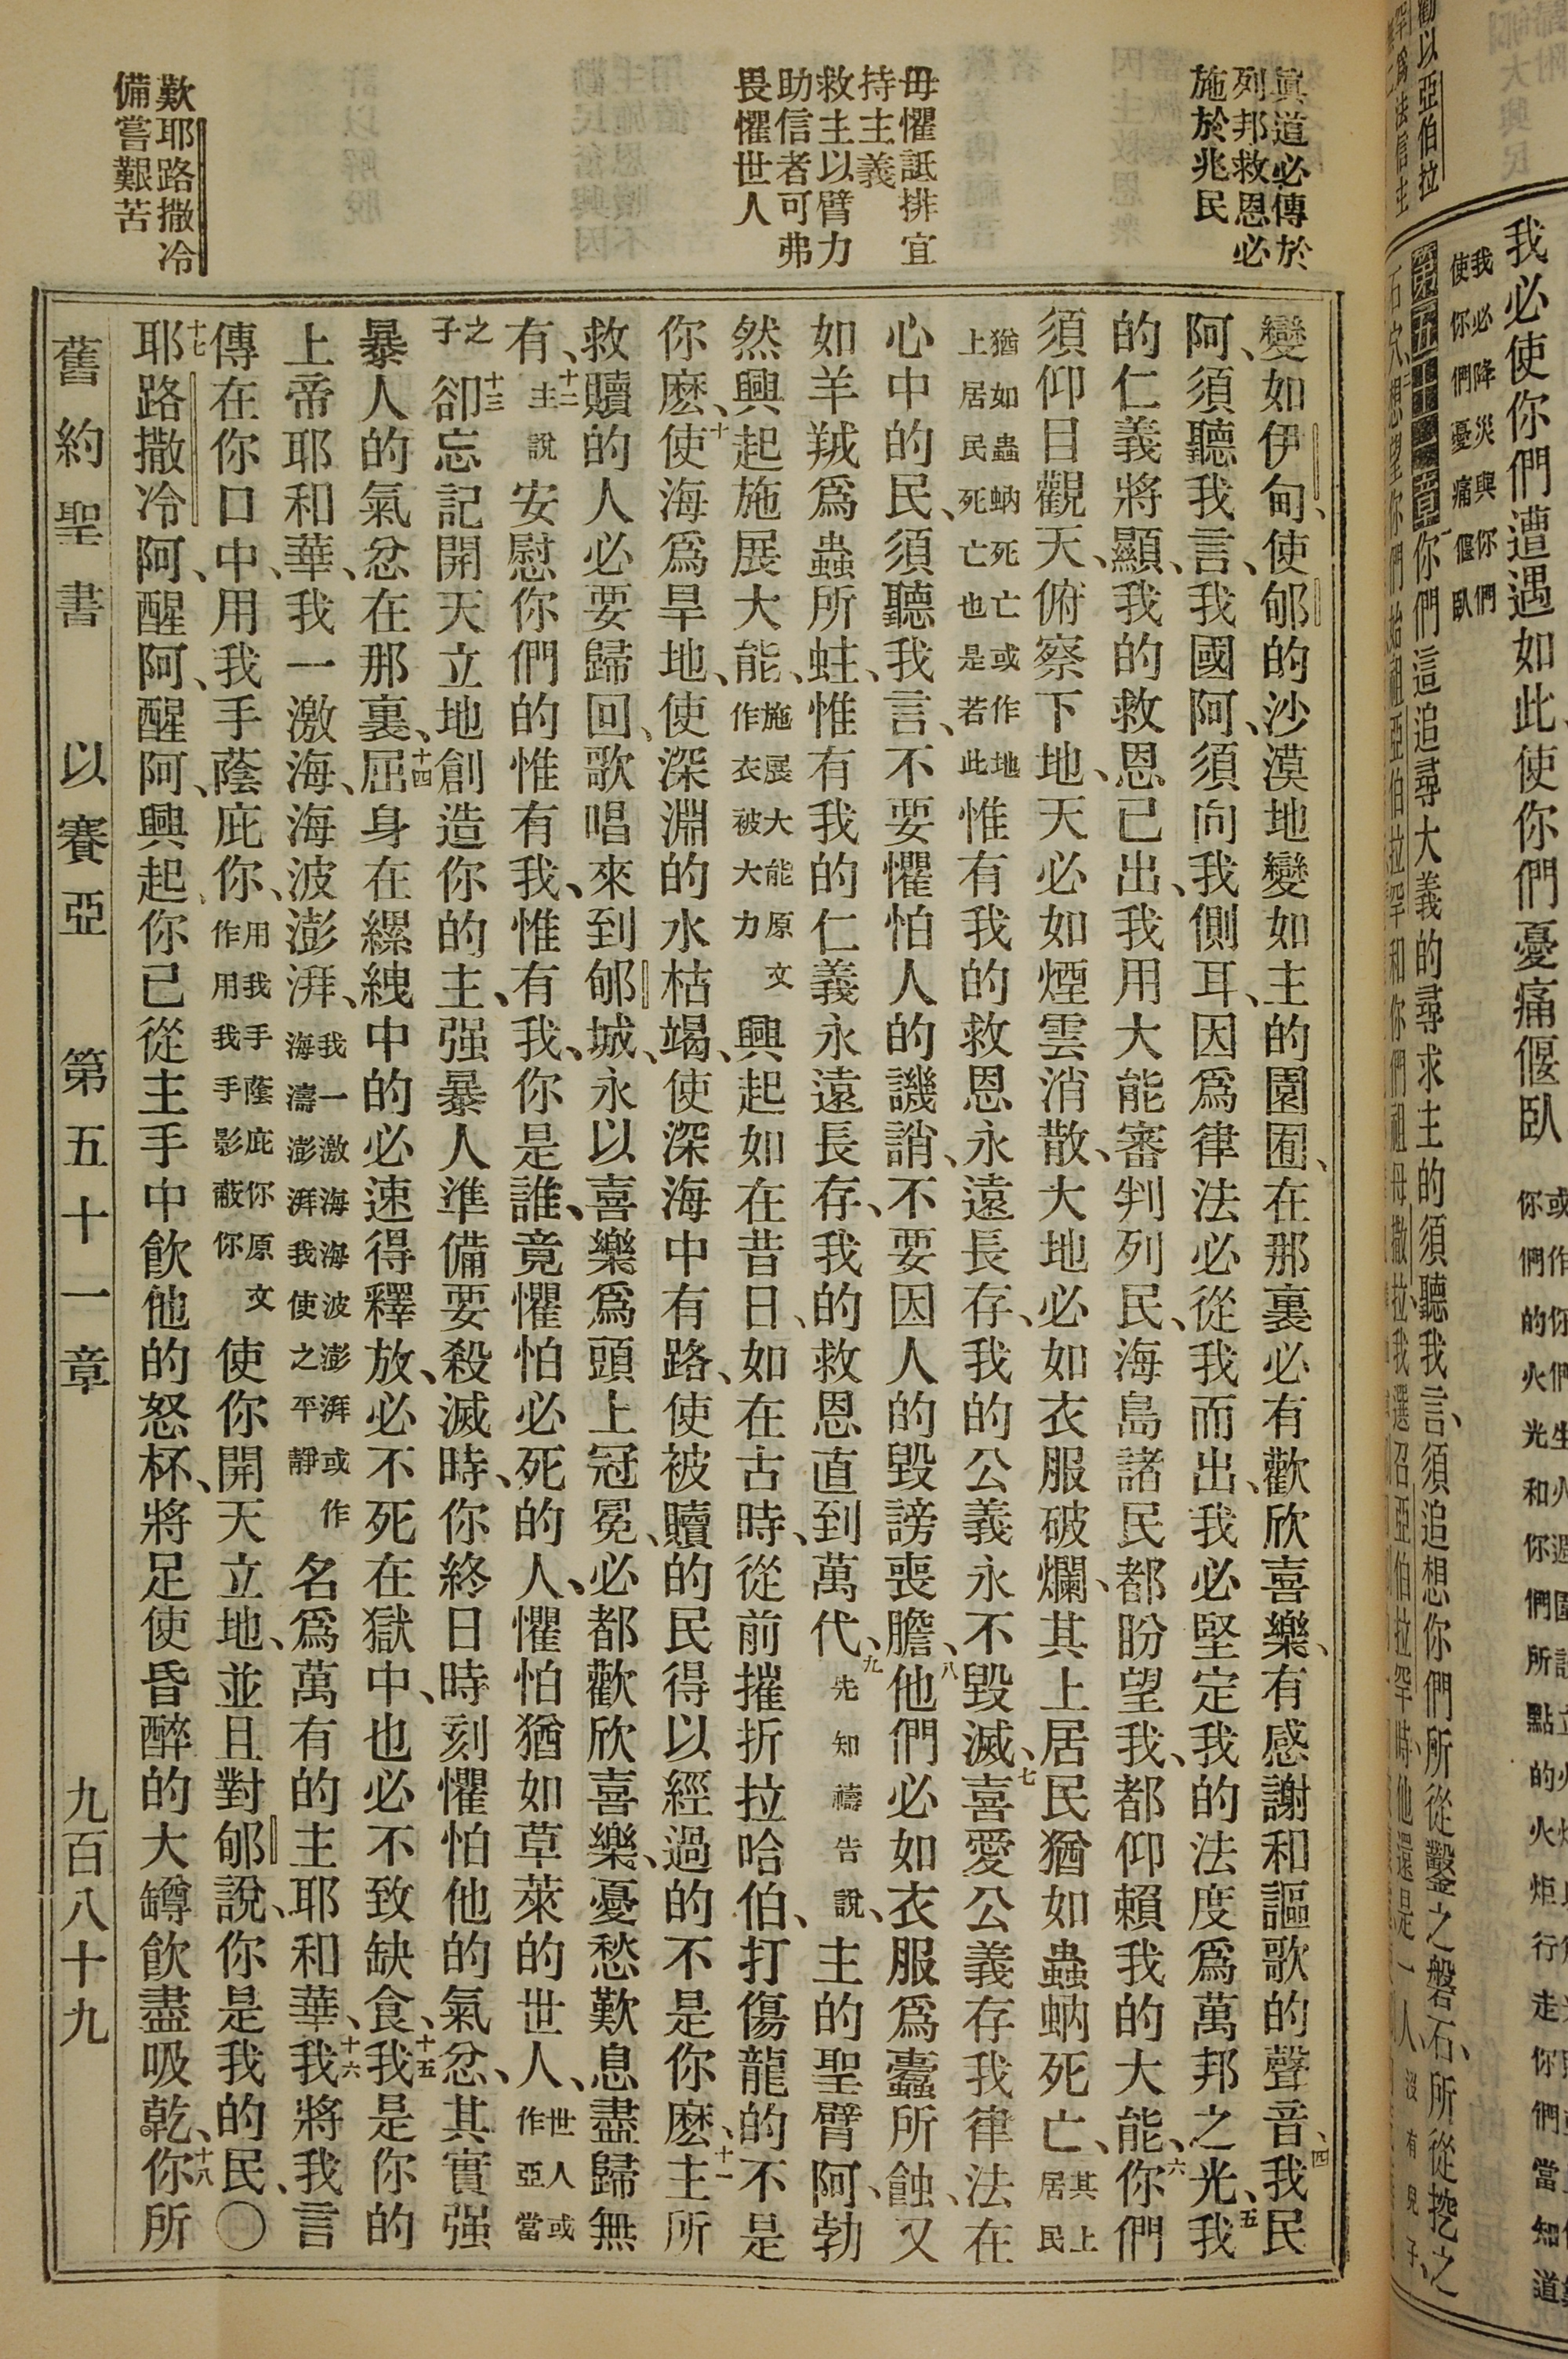 我必使你們遭遇如此、使你們憂痛偃臥
我必降災與你們
使你們憂痛偃臥
你們這追尋大義的尋求主的須聽我言、須追想你們所從鑿之磐石、所從挖之
勸以亞伯拉
眞道必傳於
列邦救恩必
施於兆民
毋懼詆排宜
持主義
救主以臂力
助信者可弗
畏懼世人
歎耶路撒冷
備嘗艱苦
變如伊甸、使郇的沙漠地變如主的園囿、在那裏必有歡欣喜樂、有感謝和謳歌的聲音、四我民
阿、須聽我言、我國阿、須向我側耳、因爲律法必從我而出、我必堅定我的法度爲萬邦之光、五我
的仁義將顯、我的救恩已出、我用大能審判列民、海島諸民都盼望我、都仰賴我的大能、六你們
須仰目觀天、俯察下地、天必如煙雲消散、大地必如衣服破爛、其上居民猶如蟲蚋死亡、其上居民
猶如蟲蚋死亡或作地上居民死亡也是若此惟有我的救恩永遠長存、我的公義永不毀滅、七喜愛公義存我律法在
心中的民、須聽我言、不要懼怕人的譏誚、不要因人的毀謗喪膽、八他們必如衣服爲蠹所蝕、又
如羊羢爲蟲所蛀、惟有我的仁義永遠長存、我的救恩直到萬代、九先知禱告說、主的聖臂阿、勃
然興起施展大能、施展大能原文作衣被大力興起如在昔日、如在古時、從前摧折拉哈伯、打傷龍的不是
你麽、十使海爲旱地、使深淵的水枯竭、使深海中有路、使被贖的民得以經過的不是你麽、十一主所
救贖的人必要歸回、歌唱來到郇城、永以喜樂爲頭上冠冕、必都歡欣喜樂、憂愁歎息盡歸無
有、十二主說安慰你們的惟有我、惟有我、你是誰、竟懼怕必死的人、懼怕猶如草萊的世人、世人或作亞當
之子十三卻忘記開天立地創造你的主、强暴人準備要殺滅時、你終日時刻懼怕他的氣忿、其實强
暴人的氣忿在那裏、十四屈身在縲絏中的必速得釋放、必不死在獄中、也必不致缺食、十五我是你的
上帝耶和華、我一激海、海波澎湃、我一激海海波澎湃或作海濤澎湃我使之平靜名爲萬有的主耶和華、十六我將我言
傳在你口中、用我手蔭庇你、用我手蔭庇你原文作用我手影蔽你使你開天立地、並且對郇說、你是我的民、〇
十七耶路撒冷阿、醒阿、醒阿、興起、你已從主手中飮他的怒杯、將足使昏醉的大罇飮盡吸乾、十八你所
舊約聖書 以賽亞 第五十一章 九百八十九